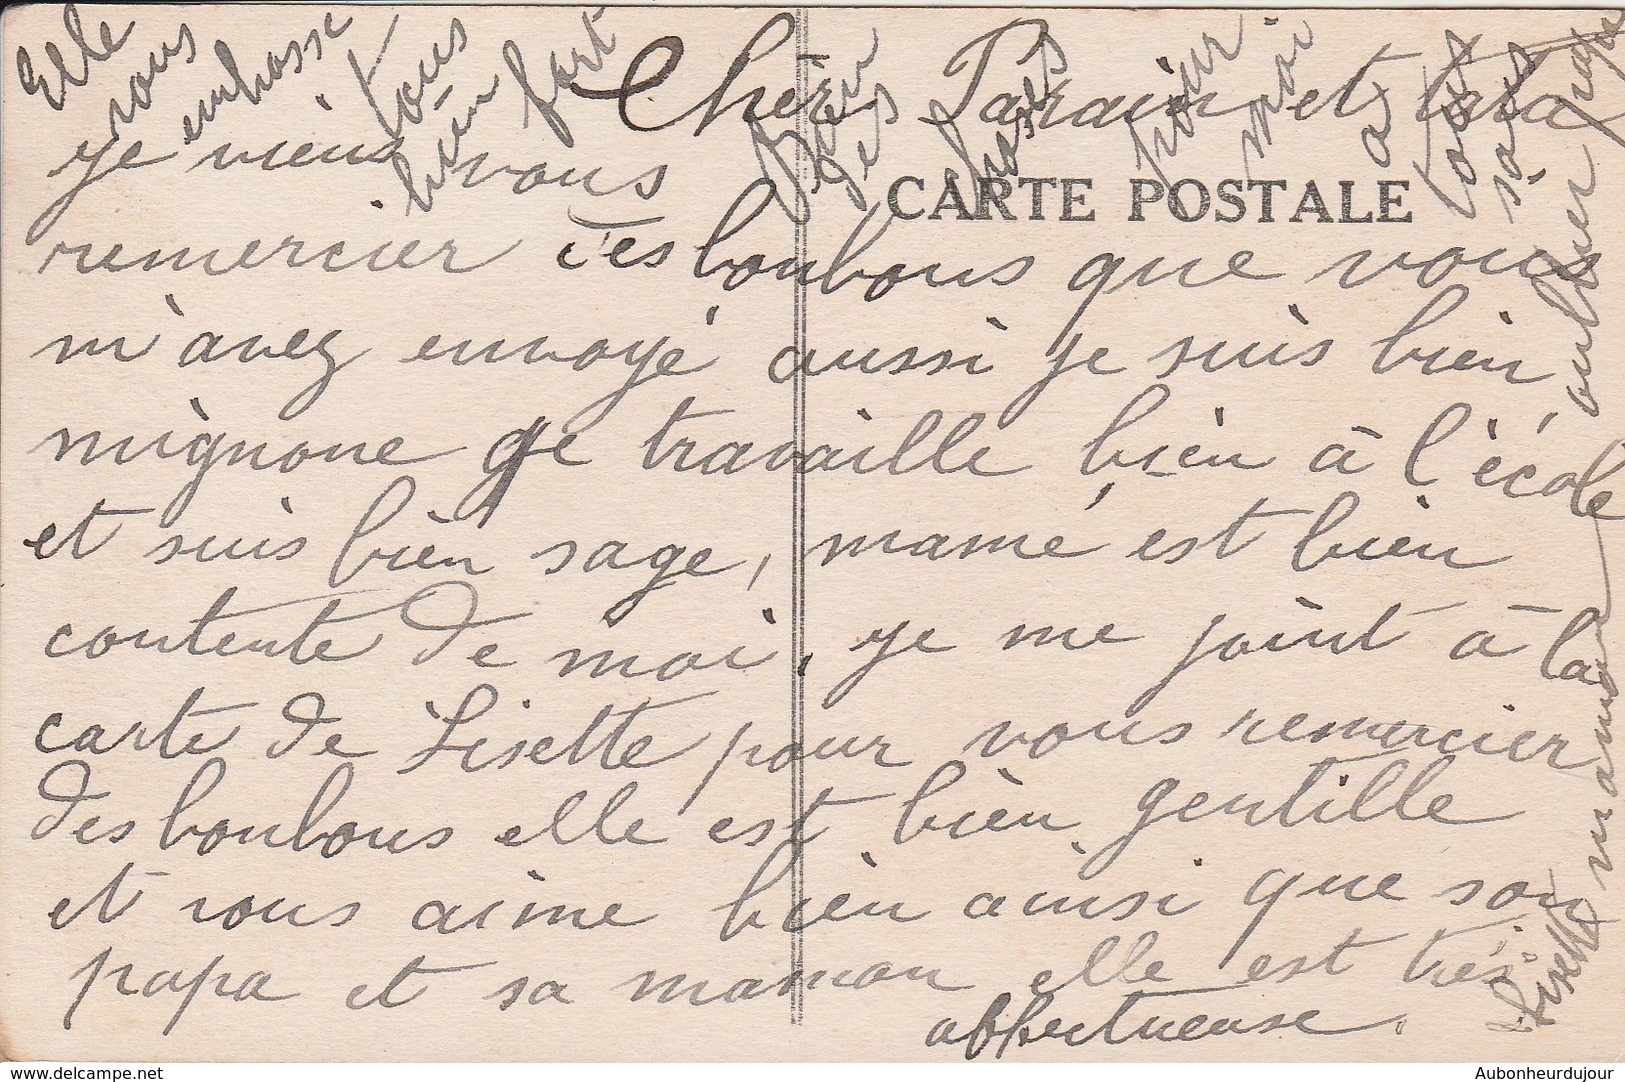 Chèr Parain et tata
je viens vous
CARTE POSTALE
remercier des bonbons que vous
m'avez envoyé aussi je suis bien
mignone je travaille bien à l'école
et suis bien sage, mamé est bien
contente de moi, je me joint à la
carte de Lisette pour vous remercier
des bonbons elle est bien gentille
et vous aime bien ainsi que son
papa et sa maman elle est très
affectueuse.
Elle
vous
embrasse
tous
bien
fort
Bien
des
choses
pour
moi
à
tous
sans
oublier
maman
Lisette
Aubonheurdujour
www.delcampe.net